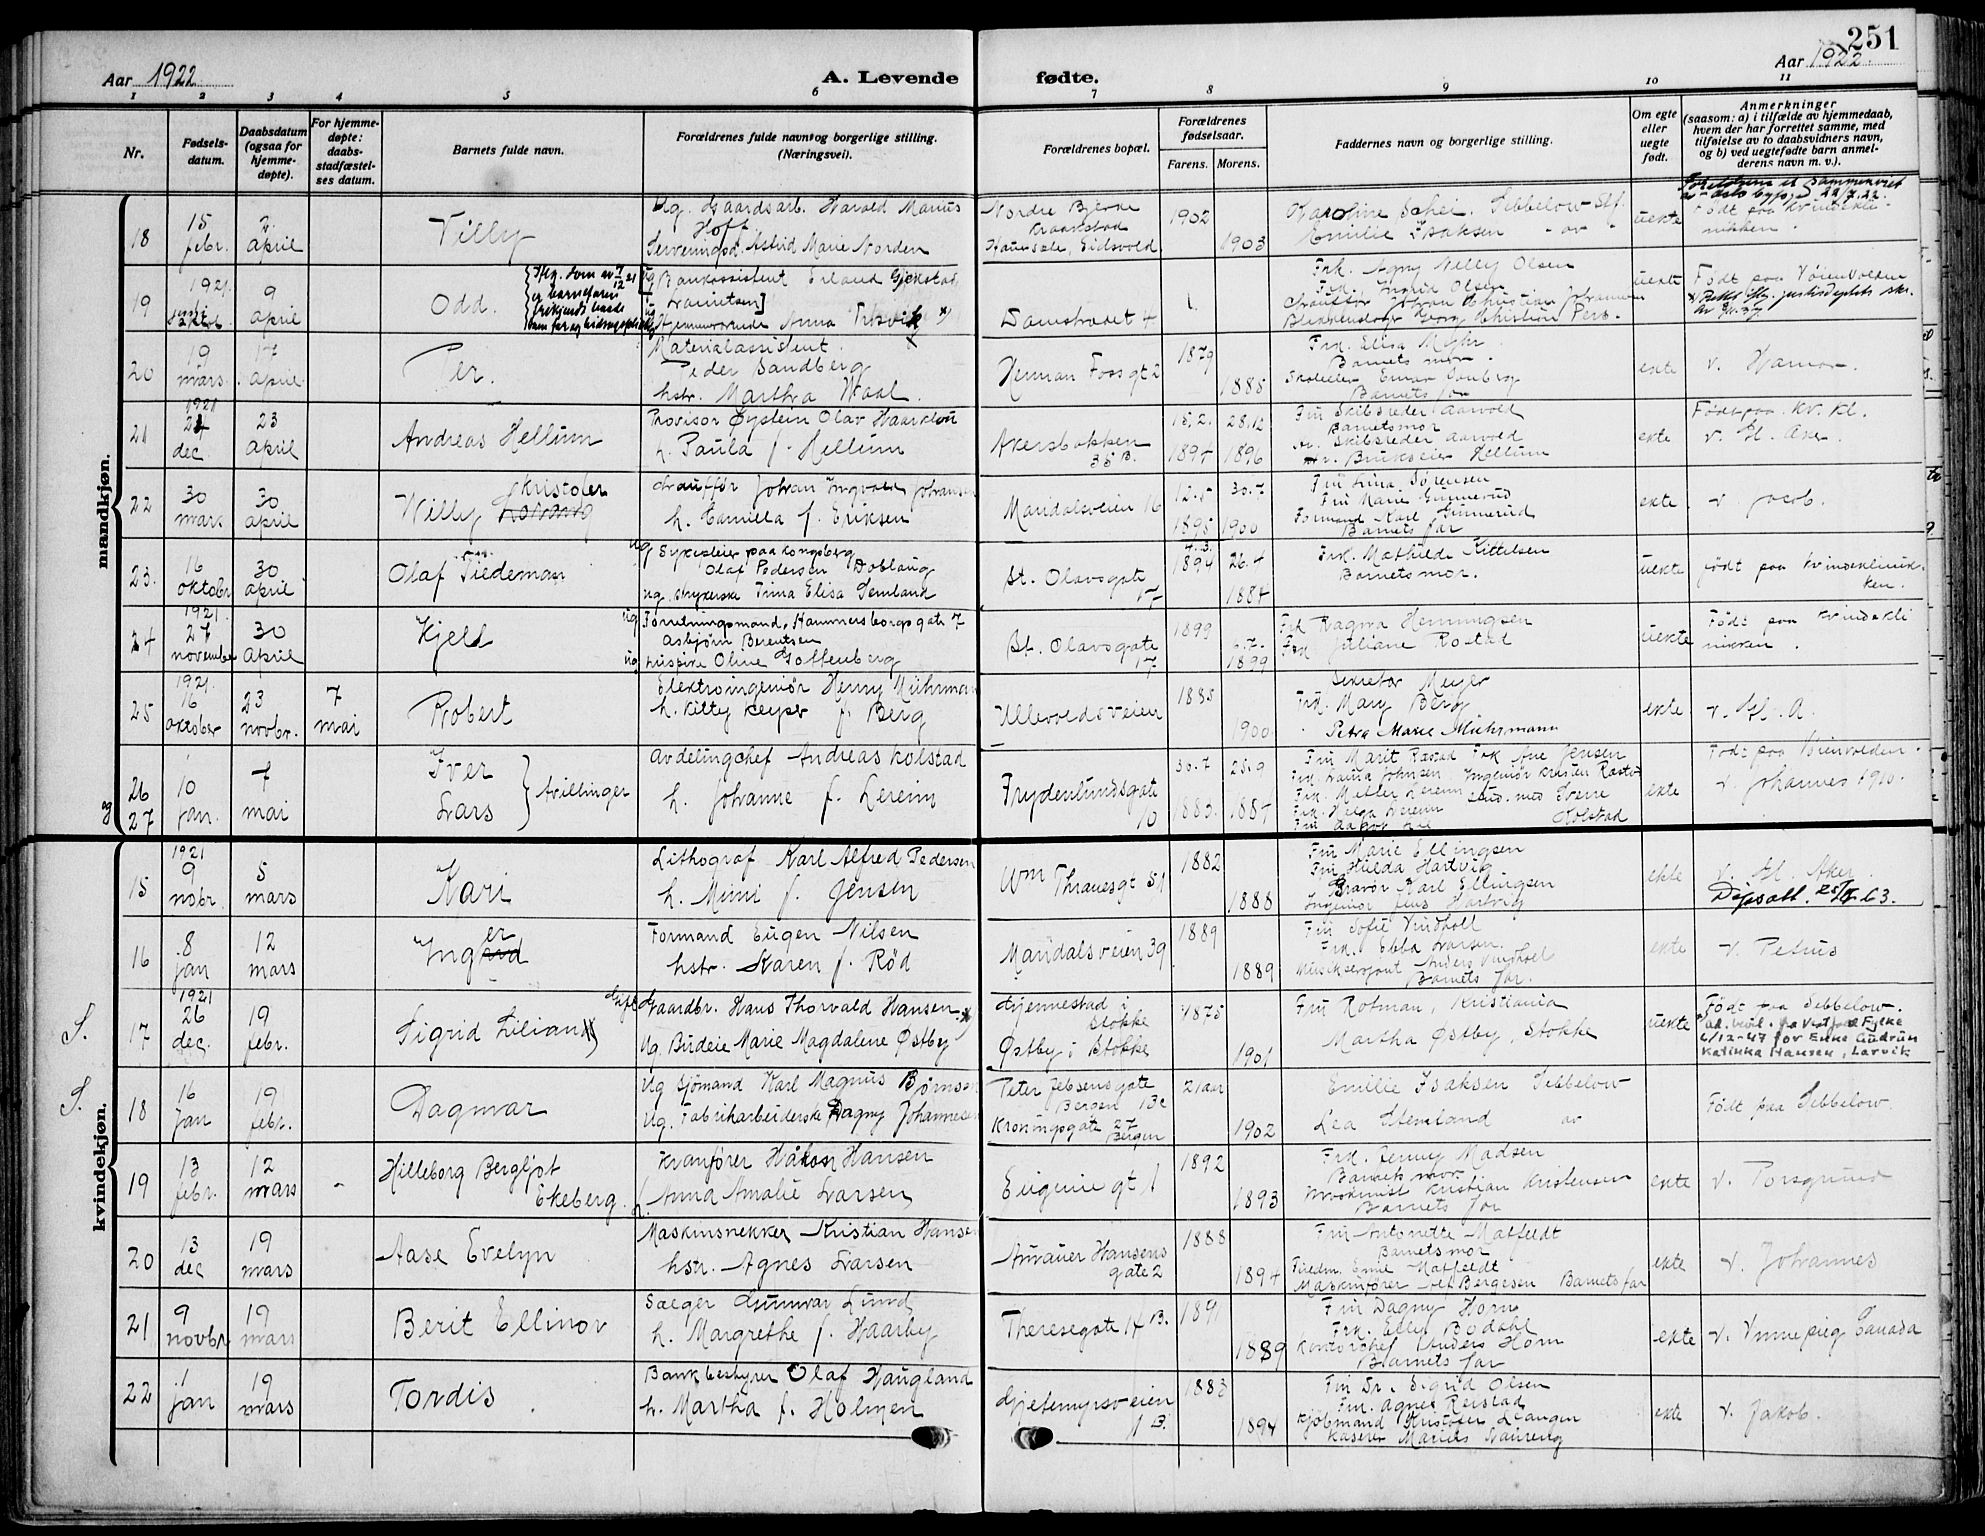 251
Aar 1922
A. Levende fødte.
Aar 1922
1 2 3 4 5 6 7 8 9 10 11
Nr.
Fødsels-
datum.
Daabsdatum
(ogsaa for
hjemme-
døpte).
For hjemme-
døpte:
daabs-
stadfæstel-
ses datum.
Barnets fulde navn.
Forældrenes fulde navn og borgerlige stilling.
(Næringsvei).
Forældrenes bopæl.
Forældrenes
fødselsaar.
Farens. Morens.
Faddernes navn og borgerlige stilling.
Om egte
eller
uegte
født.
Anmerkninger
(saasom: a) i tilfælde av hjemmedaab,
hvem der har forrettet samme, med
tilføielse av to daabsvidners navn,
og b) ved uegtefødte barn anmel-
derens navn m. v.).
mandkjøn.
og
18 15 febr. 2 april Villy
Ug. Gaardsarb. Harald Marius
Hoff
Serveringsd. Astrid Marie Norden
Nordre Bjerke
Kraakstad
Eidsvold
1902 1903
Karoline Schei. Sebbelow
Emilie Isaksen
uekte
Født paa kvindekli-
nikken.
19 1921 9 april Odd.
Ug Bankassistent Erland Gjekstad
Hjemmeværende Anna
Damstrædet 4
Frk. Agny Nelly Olsen
Frk. Olsen
Chauffør Johan Christian Johannesen
uekte
Født paa Voienvolden
20 19 mars 17 april Per.
Materialassistent
Peder Sandberg
hstr. Martha Waal.
Herman Foss gt 2
1879 1888
Frk. Elisa
Barnets mor.
Barnets far
ekte
v. Hamar.
21 1921 dec 23 april Andreas Hellum
Provisor Øystein Olav Haarklou
h. Paula f. Hellum
Akersbakken
35 B.
15.2. 1894 28.12 1896
Fru Skibsreder Aarvold
Barnets mor
Skibsreder Aarvold
Brukseier Hellum
ekte
Født paa Kv. kl.
v. Gl. Aker.
22 30 mars 30 april Willy Kristofer
Chauffør Johan Ingvald Johansen
h. Camilla f. Eriksen
Maridalsveien 16
12.5 1895 30.7 1900
Fru Lina Sørensen
Fru Marie Gunnerud
Formand Karl Gunnerud
Barnets far
ekte
v. Jacob.
23. 16 oktobr 30 april Olaf Tidemann
Ug Sykepleier paa Kongsberg
Olaf Pedersen Doblaug
Ug. strykerske Trina Elisa Semland
St. Olavsgate
17
4.3. 1894 26.4 1884
Frk. Mathilde Kittelsen
Barnets mor.
uekte
født paa kvindeklinik-
ken.
24 1921 27 november 30 april Kjell
Ug Forretningsmand, Hammersborgsgate 7
Asbjørn Berentsen
Ug. Oline Goffenberg
St. Olavsgate
17
1899 6.7. 1899
Frk Ragna Henningsen
Frk Juliane Rostad
uekte
Født paa kvindekli
nikken.
25 1921. 16 oktober 23 novbr. 7 mai Robert
Elektroingeniør Henry Mührmann
h. Kitty Keyser f. Berg
Ullevoldsveien
1885 1900
Sekretær Meyer
Frk. Mary Berg
Petra Marie Mührmann
ekte
v. Gl. A.
26 27 10 jan. 7 mai Iver Lars } tvillinger
Avdelingchef Andreas Kolstad
h. Johanne f. Lereim
Frydenlundsgate
10
30.7 1883. 25.9 1887
Fru Marit Røstad Frk Ane Jensen
Frk. Laura Johnsen Ingeniør Kristen Røstad
Frk. Helga Lereim
Kolstad
ekte
Født paa Voienvolden.
v. Johannes 1910.
kvindekjøn.
15 1921 9 nobr. 5 mars Kari
Lithograf Karl Alfred Pedersen
h. Mimi f. Jensen
Wm Thranesgt 51
1882 1888
Fru Marie Ellingsen
Fru Hilda Hartvig
Gravør Karl Ellingsen
Ingeniør Jens Hartvig
ekte
v. Gl. Aker.
Dåpsatt.
16 8 jan 12 mars Inger
Formand Eugen Nilsen
hstr. Karen f. Rød
Maridalsveien 39
1889 1889
Fru Sofie Vindholt
Frk. Ebba Larsen.
Musiksergant Anders Vindhol
Barnets far.
ekte
v. Petrus
S. 17 1921 26 dec. 19 febr. Sigrid Lilian x)
Gift Gaardbr. Hans Thorvald Hansen x
Ug. Budeie Marie Magdalene Østby
Gjennestad i
Stokke
Østby i Stokke
1875 1901
Fru Rotman, Kristiania
Martha Østby, Stokke
uekte
Født paa Sebbelow.
fra Vestfold Fylke
6/12-47 for Enke Gudrun
Katinka Hansen, Larvik
S. 18 16 jan 19 febr. Dagmar
Ug Sjømand Karl Magnus Børnsen
Ug. Fabrikarbeiderske Dagny Johannesen
Peter Jebsensgate
Bergen 13c
Kroningsgate 27
Bergen
21 aar 1902
Emilie Isaksen Sebbelow
Lea
Født paa Sebbelow.
19 13 febr. 12 mars - Hilleborg Bergljot
Ekeberg.
Kranfører Håkon Hansen
h. Anna Amalie Larsen
Eugenie gt 1
1892 1893
Frk. Jenny Madsen
Barnets mor.
Kristian Kristensen
Barnets far
ekte
v. Porsgrund
20 13 dec 19 mars Aase Evelyn
Maskinsnekker Kristian Hansen
hstr. Agnes Larsen
Amauer Hansens
gate 2
1888 1894
Fru Antonette Matfeldt
Barnets mor
Matfeldt
Maskinfører Bergesen Barnets far
ekte
v. Johannes
21 9 novbr 19 mars Berit Ellinor
Sæger Gunnar Lund
h. Margrethe f. Haarby
Theresegate 14 B.
1891 1889
Fru Dagny Horn
Frk. Elly Bødahl
Kontorchef Anders Horn
Barnets far
ekte
v. Vinnepieg Canada
22 1 jan 19 mars Tordis
Bankbestyrer Olaf Haugland
h. Martha f. Holmen
Gjetemyrsveien
1 B.
1883 1894
Fru Dr. Sigrid Olsen
Fru. Agnes Reistad
Kjøbmand Kristofer Leangen
Kaserer Marius
ekte
v. Jakob.